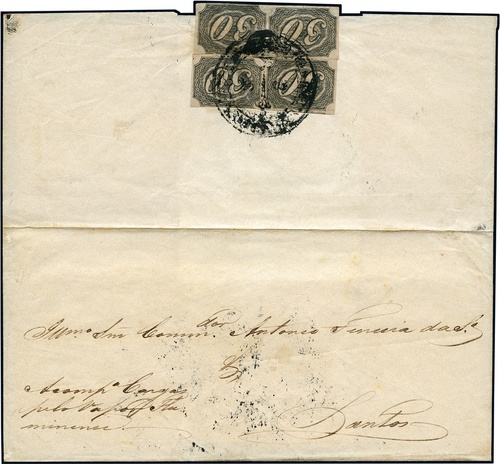 30 30
30 30
Illmo. Snr. Commdor. Antonio Ferreira da Sa.
Acompa. Cargas
pelo Vapor Ita
minense.
Santos